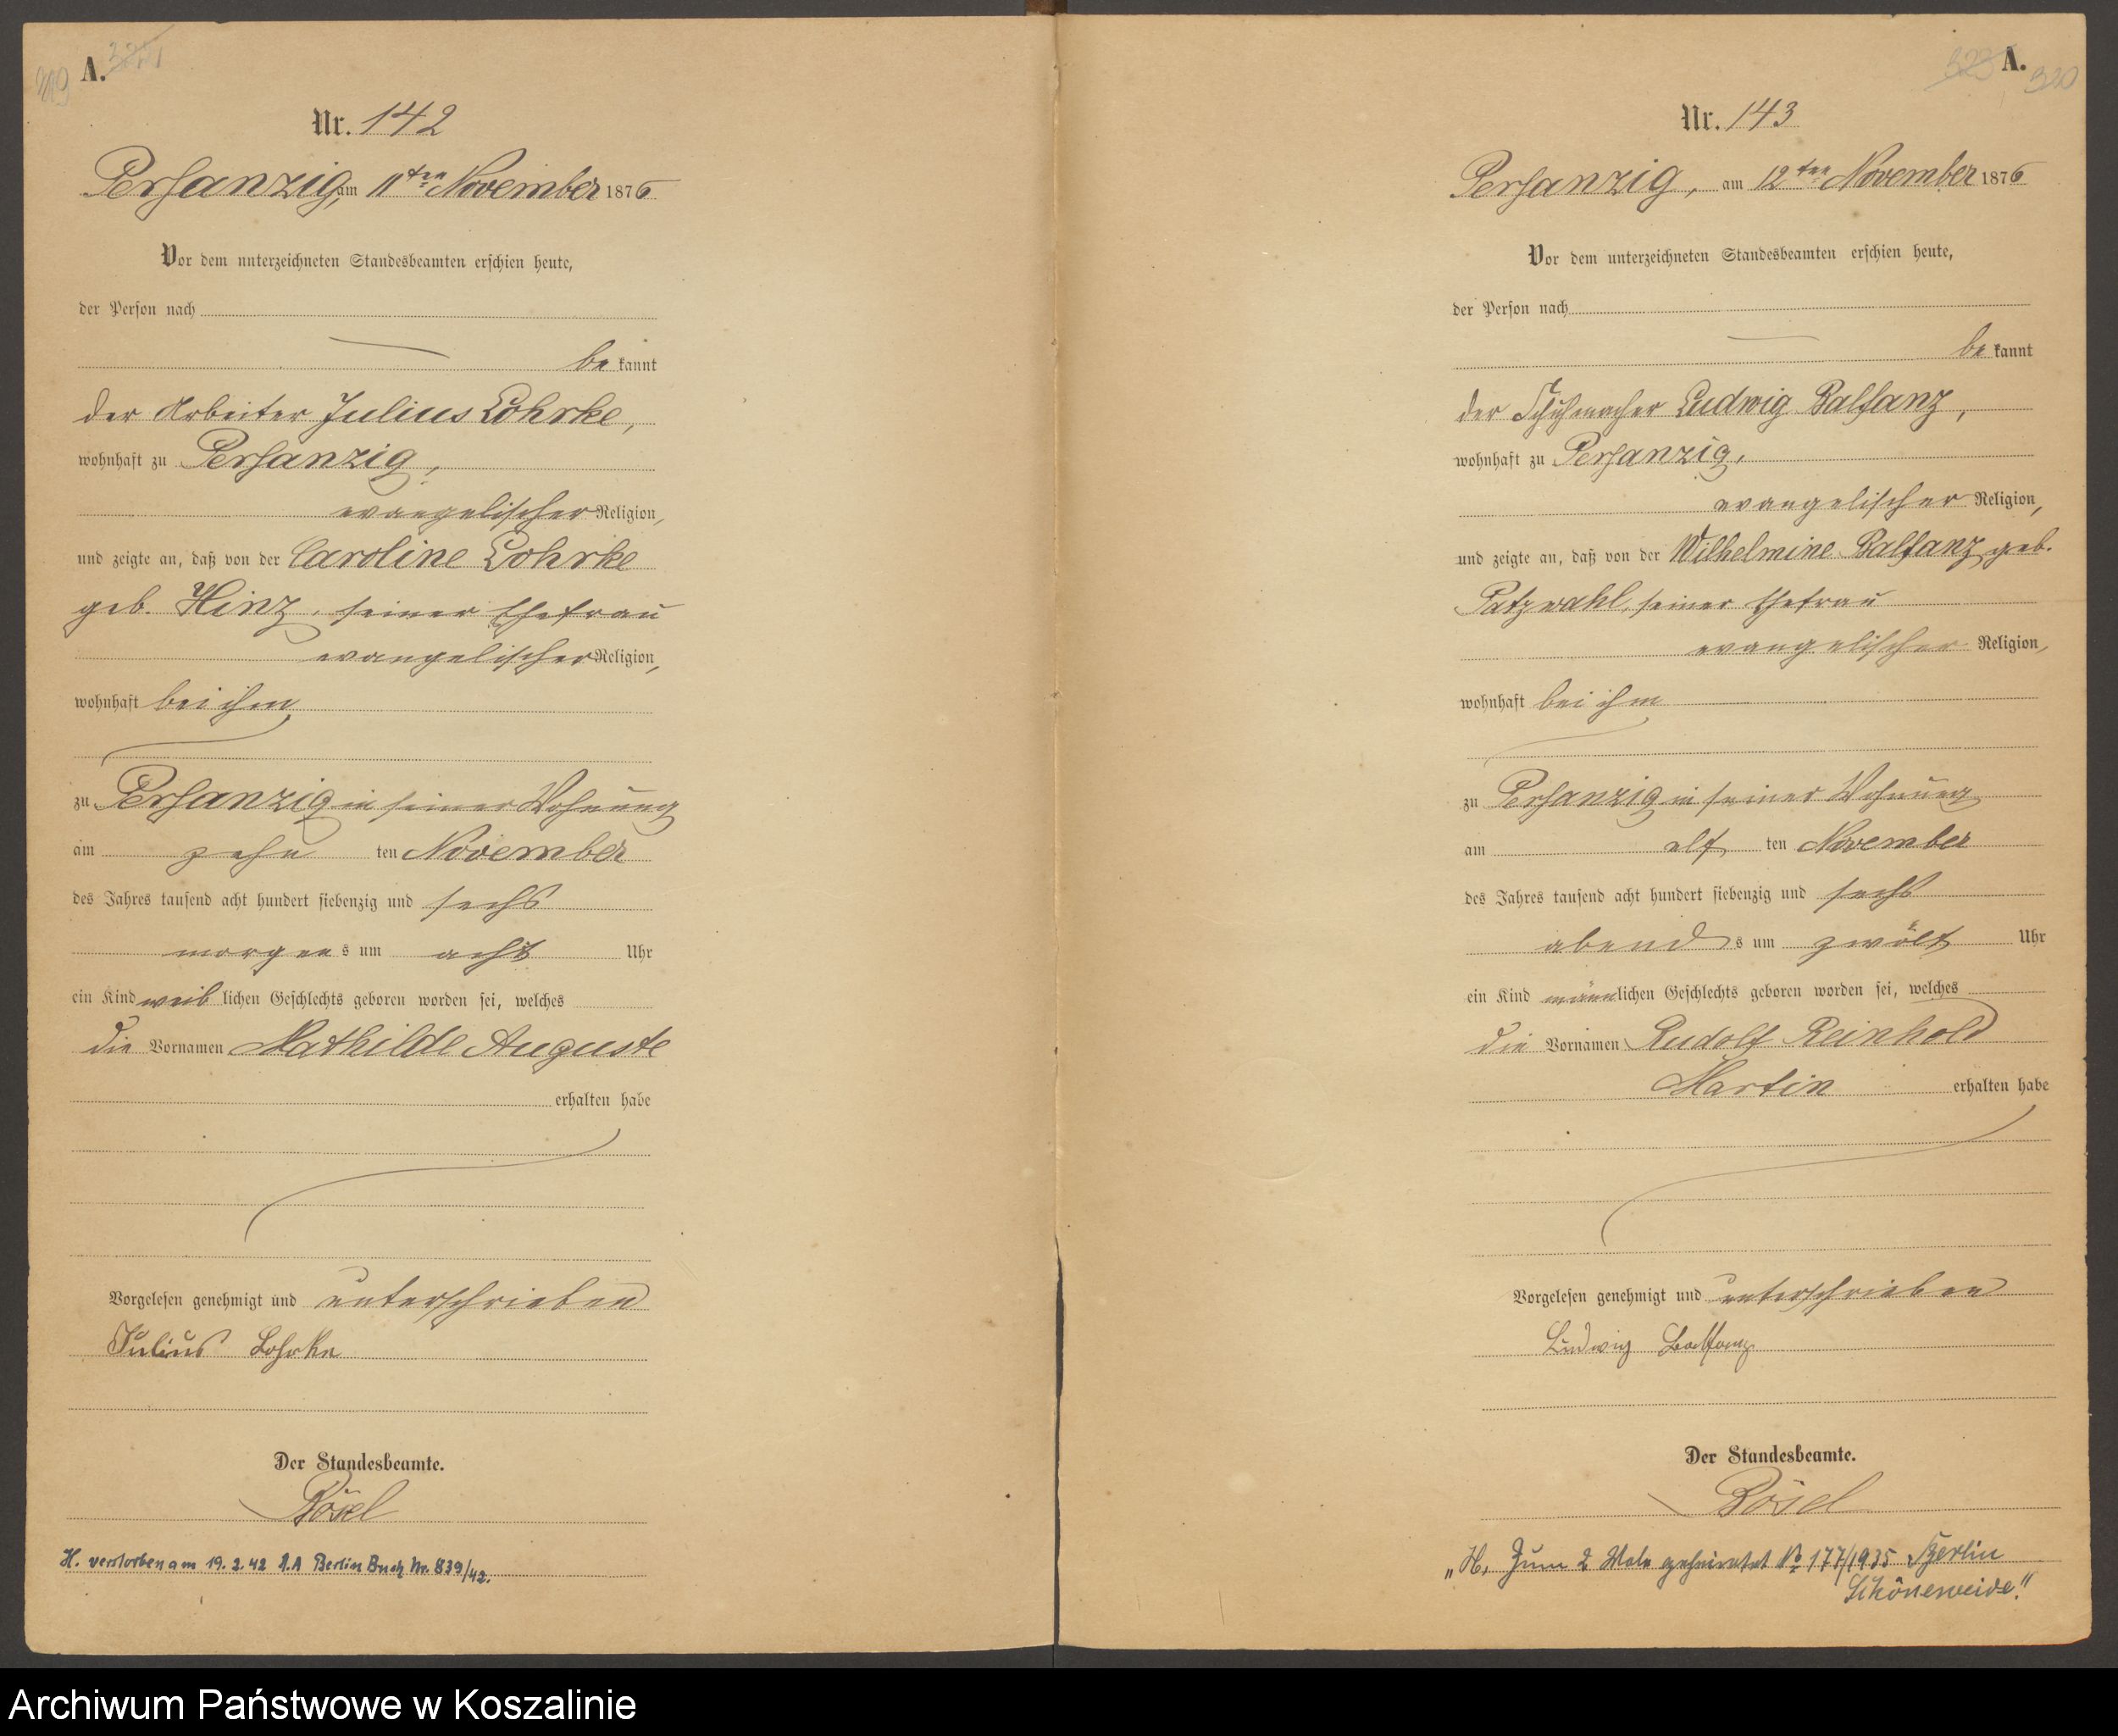 A.
319
Nr. 142
Persanzig, am 11ten November 1876
Vor dem unterzeichneten Standesbeamten erschien heute,
der Person nach
be kannt
der Arbeiter Julius Lohrke,
wohnhaft zu Persanzig,
evangelischer Religion,
und zeigte an, daß von der Caroline Lohrke
geb. Hinz, seiner Ehefrau
evangelischer Religion,
wohnhaft bei ihm
zu Persanzig in seiner Wohnung
am zehn ten November
des Jahres tausend acht hundert siebenzig und sechs
morgen s um acht Uhr
ein Kind weib lichen Geschlechts geboren worden sei, welches
die Vornamen Mathilde Auguste
erhalten habe
Vorgelesen genehmigt und unterschrieben
Julius Lohrke
Der Standesbeamte.
Bösel
H. verstorben am 19.2.42 St.A Berlin Buch Nr. 839/42.
A.
320
Nr. 143
Persanzig, am 12ten November 1876
Vor dem unterzeichneten Standesbeamten erschien heute,
der Person nach
be kannt
der Schuhmacher Ludwig Balfanz,
wohnhaft zu Persanzig,
evangelischer Religion,
und zeigte an, daß von der Wilhelmine Balfanz geb.
Patzwahl, seiner Ehefrau
evangelischer Religion,
wohnhaft bei ihm
zu Persanzig in seiner Wohnung
am elf ten November
des Jahres tausend acht hundert siebenzig und sechs
abend s um zwölf Uhr
ein Kind männlichen Geschlechts geboren worden sei, welches
die Vornamen Rudolf Reinhold
Martin erhalten habe
Vorgelesen genehmigt und unterschrieben
Ludwig Balfanz
Der Standesbeamte.
Bösel
"H. Zum 2 Male geheiratet No 177/1935 Berlin
Schöneweide."
Archiwum Państwowe w Koszalinie